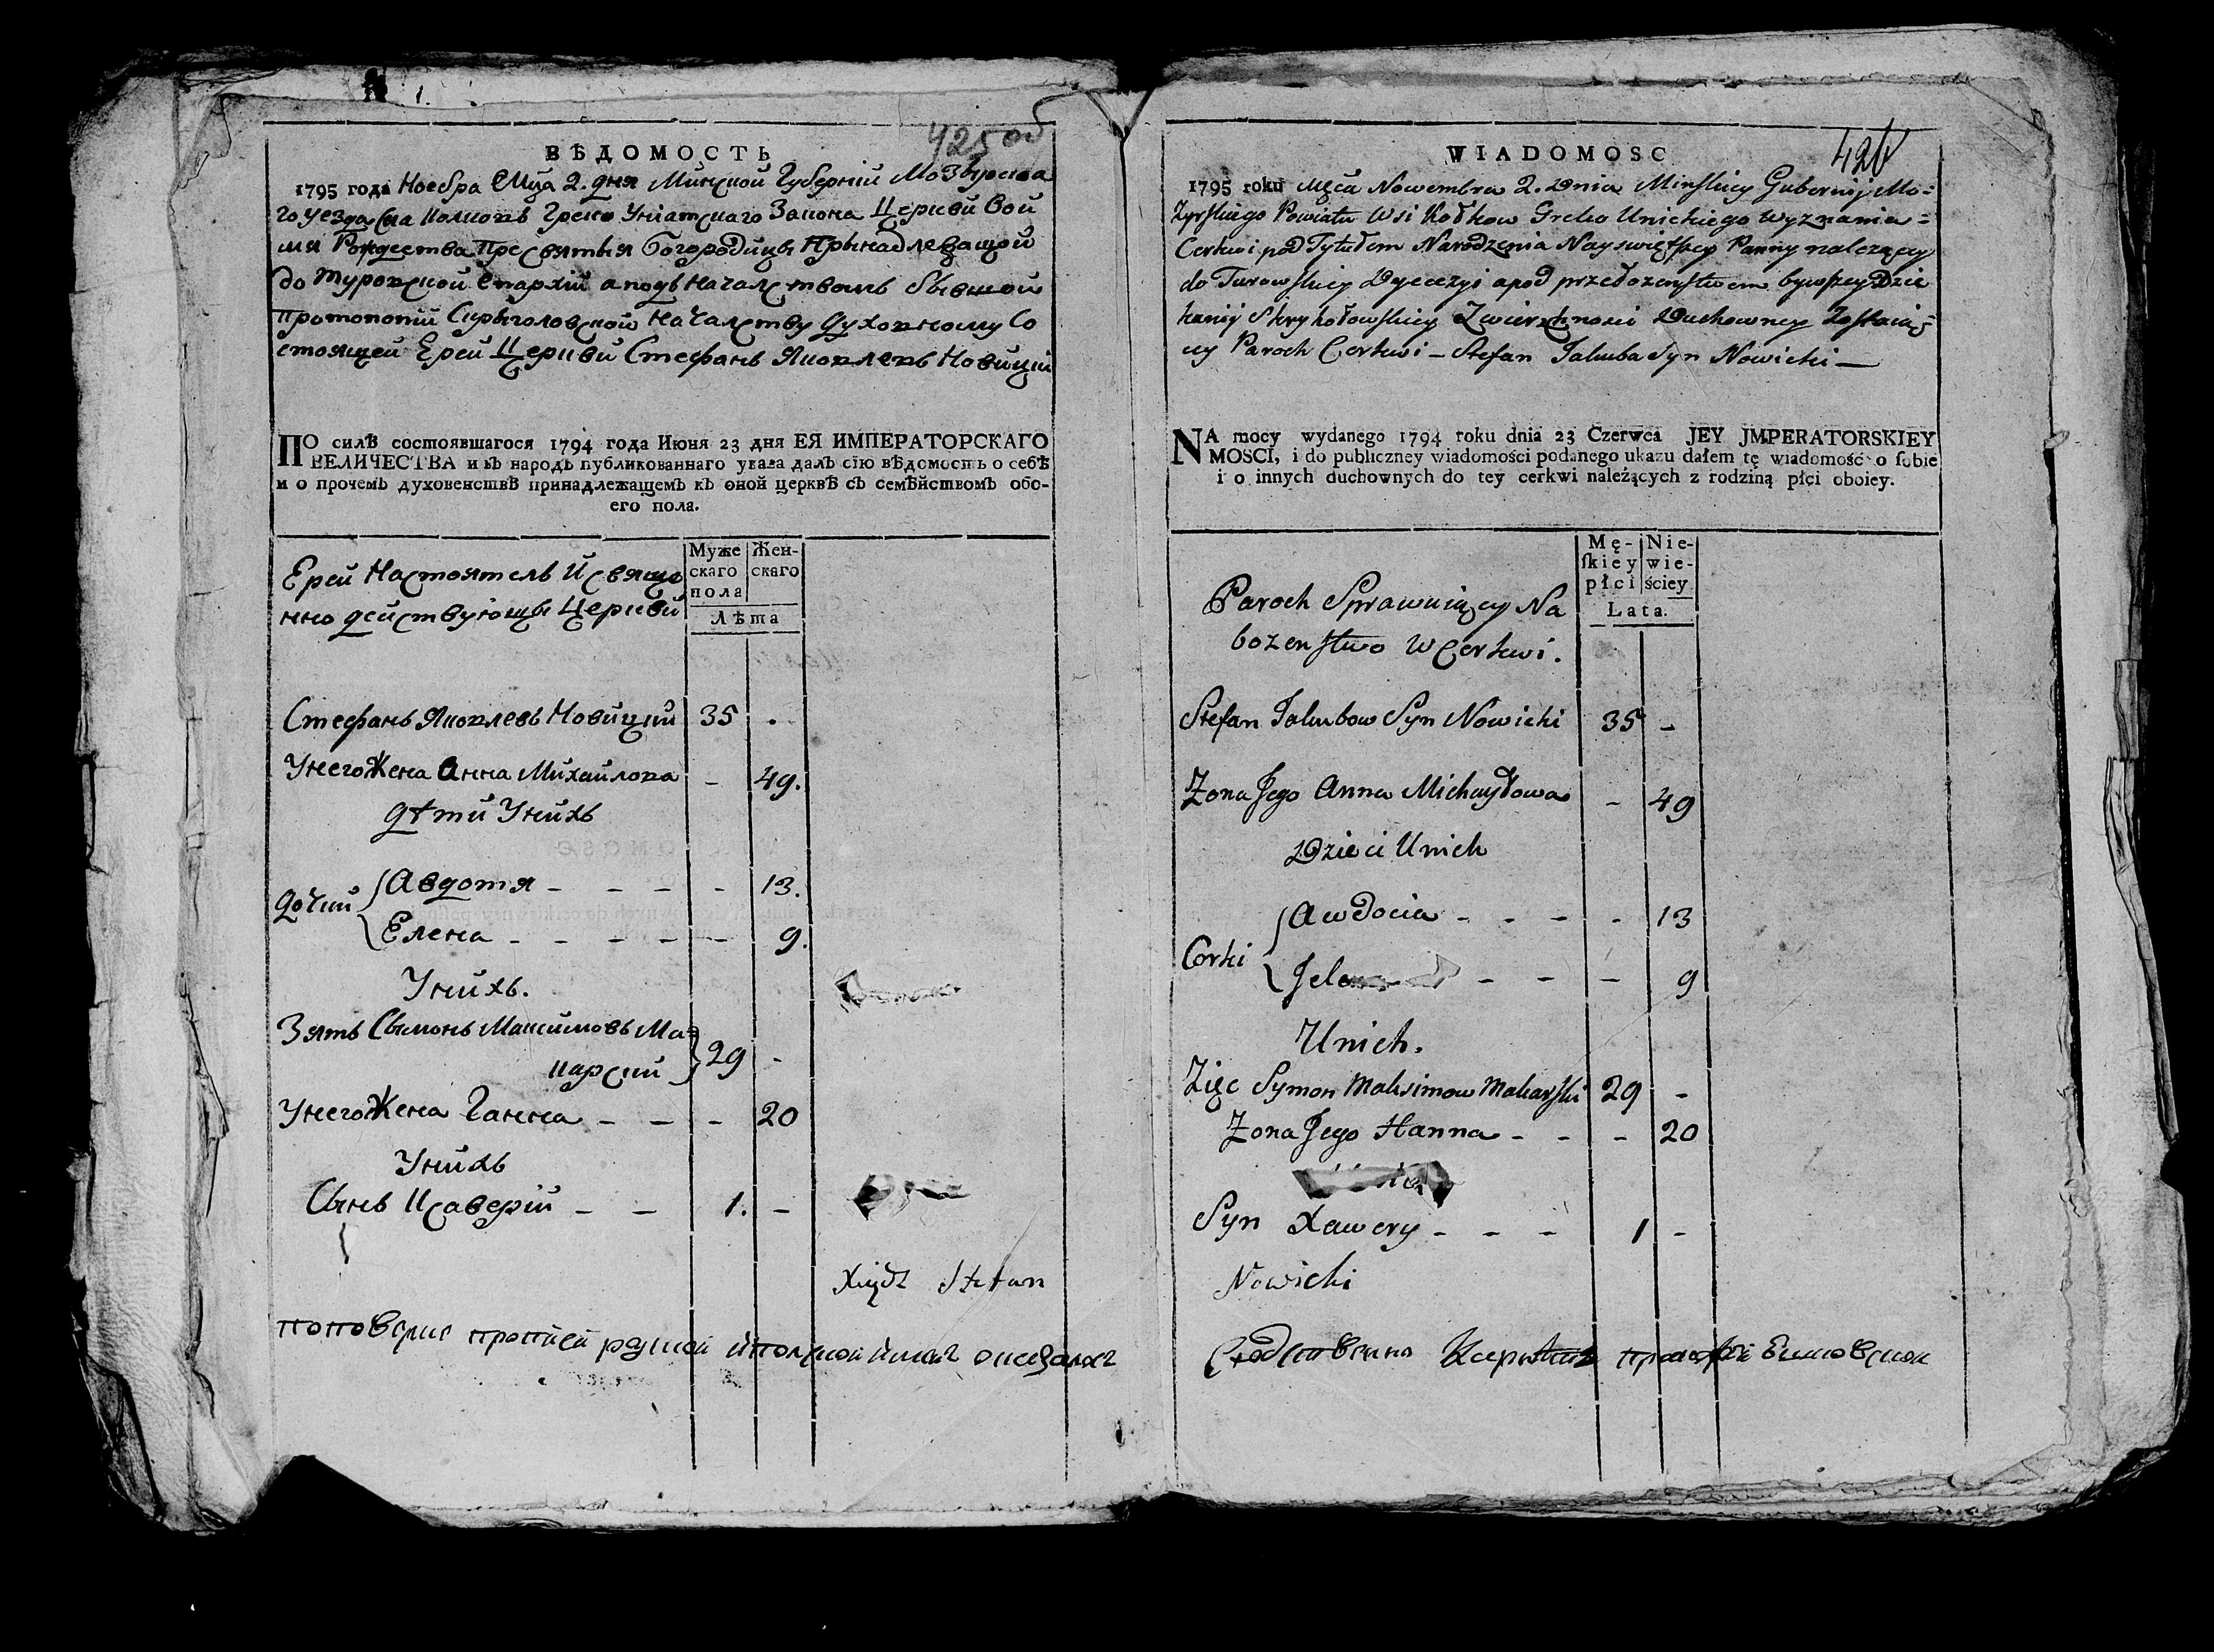 425 об
ВѢДОМОСТЬ
1795 года Ноебра Мца 2. дня Минской Губерній Мозвырска
го уезда Села Колковъ Греко Униатскаго Закона Церкви Вои
мя Рождества Пресвятыя Богородицы Принадлежащой
до Туровской Епархіи а подъ Началствомъ бывшой
Протопопіи Скрыголовской Началству Духовному Со
стоящей Ерей Церкви Стефанъ Яковлевъ Новицкій
ПО силѣ состоявшагося 1794 года Июня 23 дня ЕЯ ИМПЕРАТОРСКАГО
ВЕЛИЧЕСТВА и въ народъ публикованнаго указа далъ сїю вѣдомость о себѣ
и о прочемъ духовенствѣ принадлежащемъ къ оной церквѣ съ семѣйствомъ обо-
его пола.
Ерей Настоятель И Свяще
нно действующы Церкви
Муже
скаго
пола
Жен-
скаго
Лѣта
Стефанъ Яковлевъ Новицкий 35 .
Унего Жена Анна Михайлова - 49.
дѣти Унихъ
дочки
Авдотя - - - - 13.
Елена - - - - - 9.
Унихъ.
Зять Сымонъ Максимовъ Ма=
карский 29 -
Унего Жена Ганна - - - 20
Унихъ
Сынъ Ксаверій - - 1. -
Xiądz Stefan
WIADOMOSC
1795 roku Męca Nowembra 2. Dnia Minskiey Gubernij Mo=
Zyrskiego Powiatu Wsi Kołkow Greko Unickiego wyznania=
Cerkwi pod Tytułem Narodzenia Nayswiętszey Panny nalezącey
do Turowskiey Dyecezyi a pod przełozenstwem bywszey Dzie
kanij Skryhołowskiey Zwierzchnosci Duchowney Zostaią=
cy Paroch Cerkwi - Stefan Jakuba Syn Nowicki -
NA mocy wydanego 1794 roku dnia 23 Czerwca JEY JMPERATORSKIEY
MOSCI, i do publiczney wiadomości podanego ukazu dałem tę wiadomość o sobie
i o innych duchownych do tey cerkwi należących z rodziną płci oboiey.
Paroch Sprawuiący Na
bozenstwo w Cerkwi.
Mę-
skiey
płci
Nie-
wie-
ściey
Lata.
Stefan Jakubow Syn Nowicki 35 -
Zona Jego Anna Michayłowa - 49
Dzieci Unich
Corki
Awdocia - - - - 13
- - - 9
Unich.
Zięc Symon Maksimow Makarski 29 -
Zona Jego Hanna - - - 20
Syn Xawery - - - 1 -
Nowicki